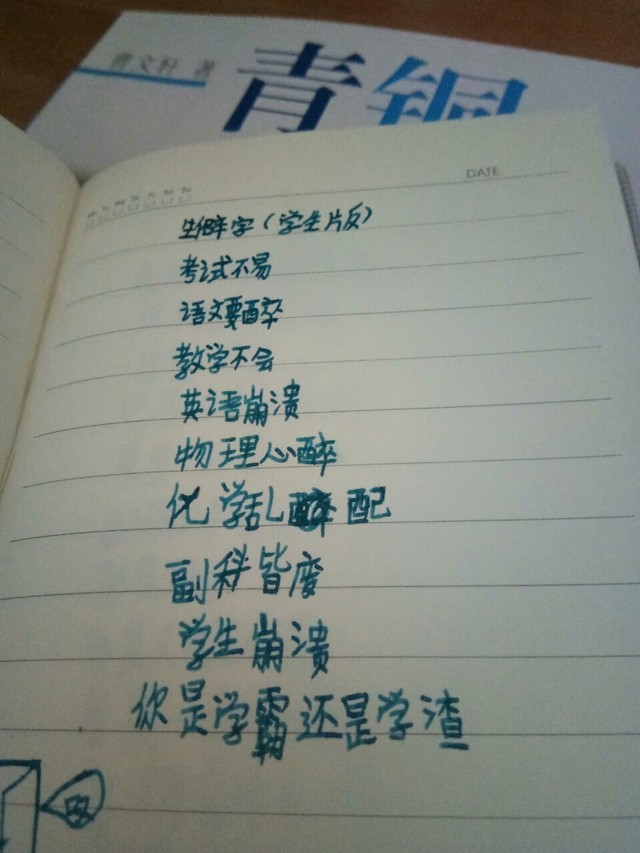 曹文轩 著
青铜
DATE
生僻字（学生版）
考试不易
语文要醉
数学不会
英语崩溃
物理心醉
化学乱配
副科皆废
学生崩溃
你是学霸还是学渣